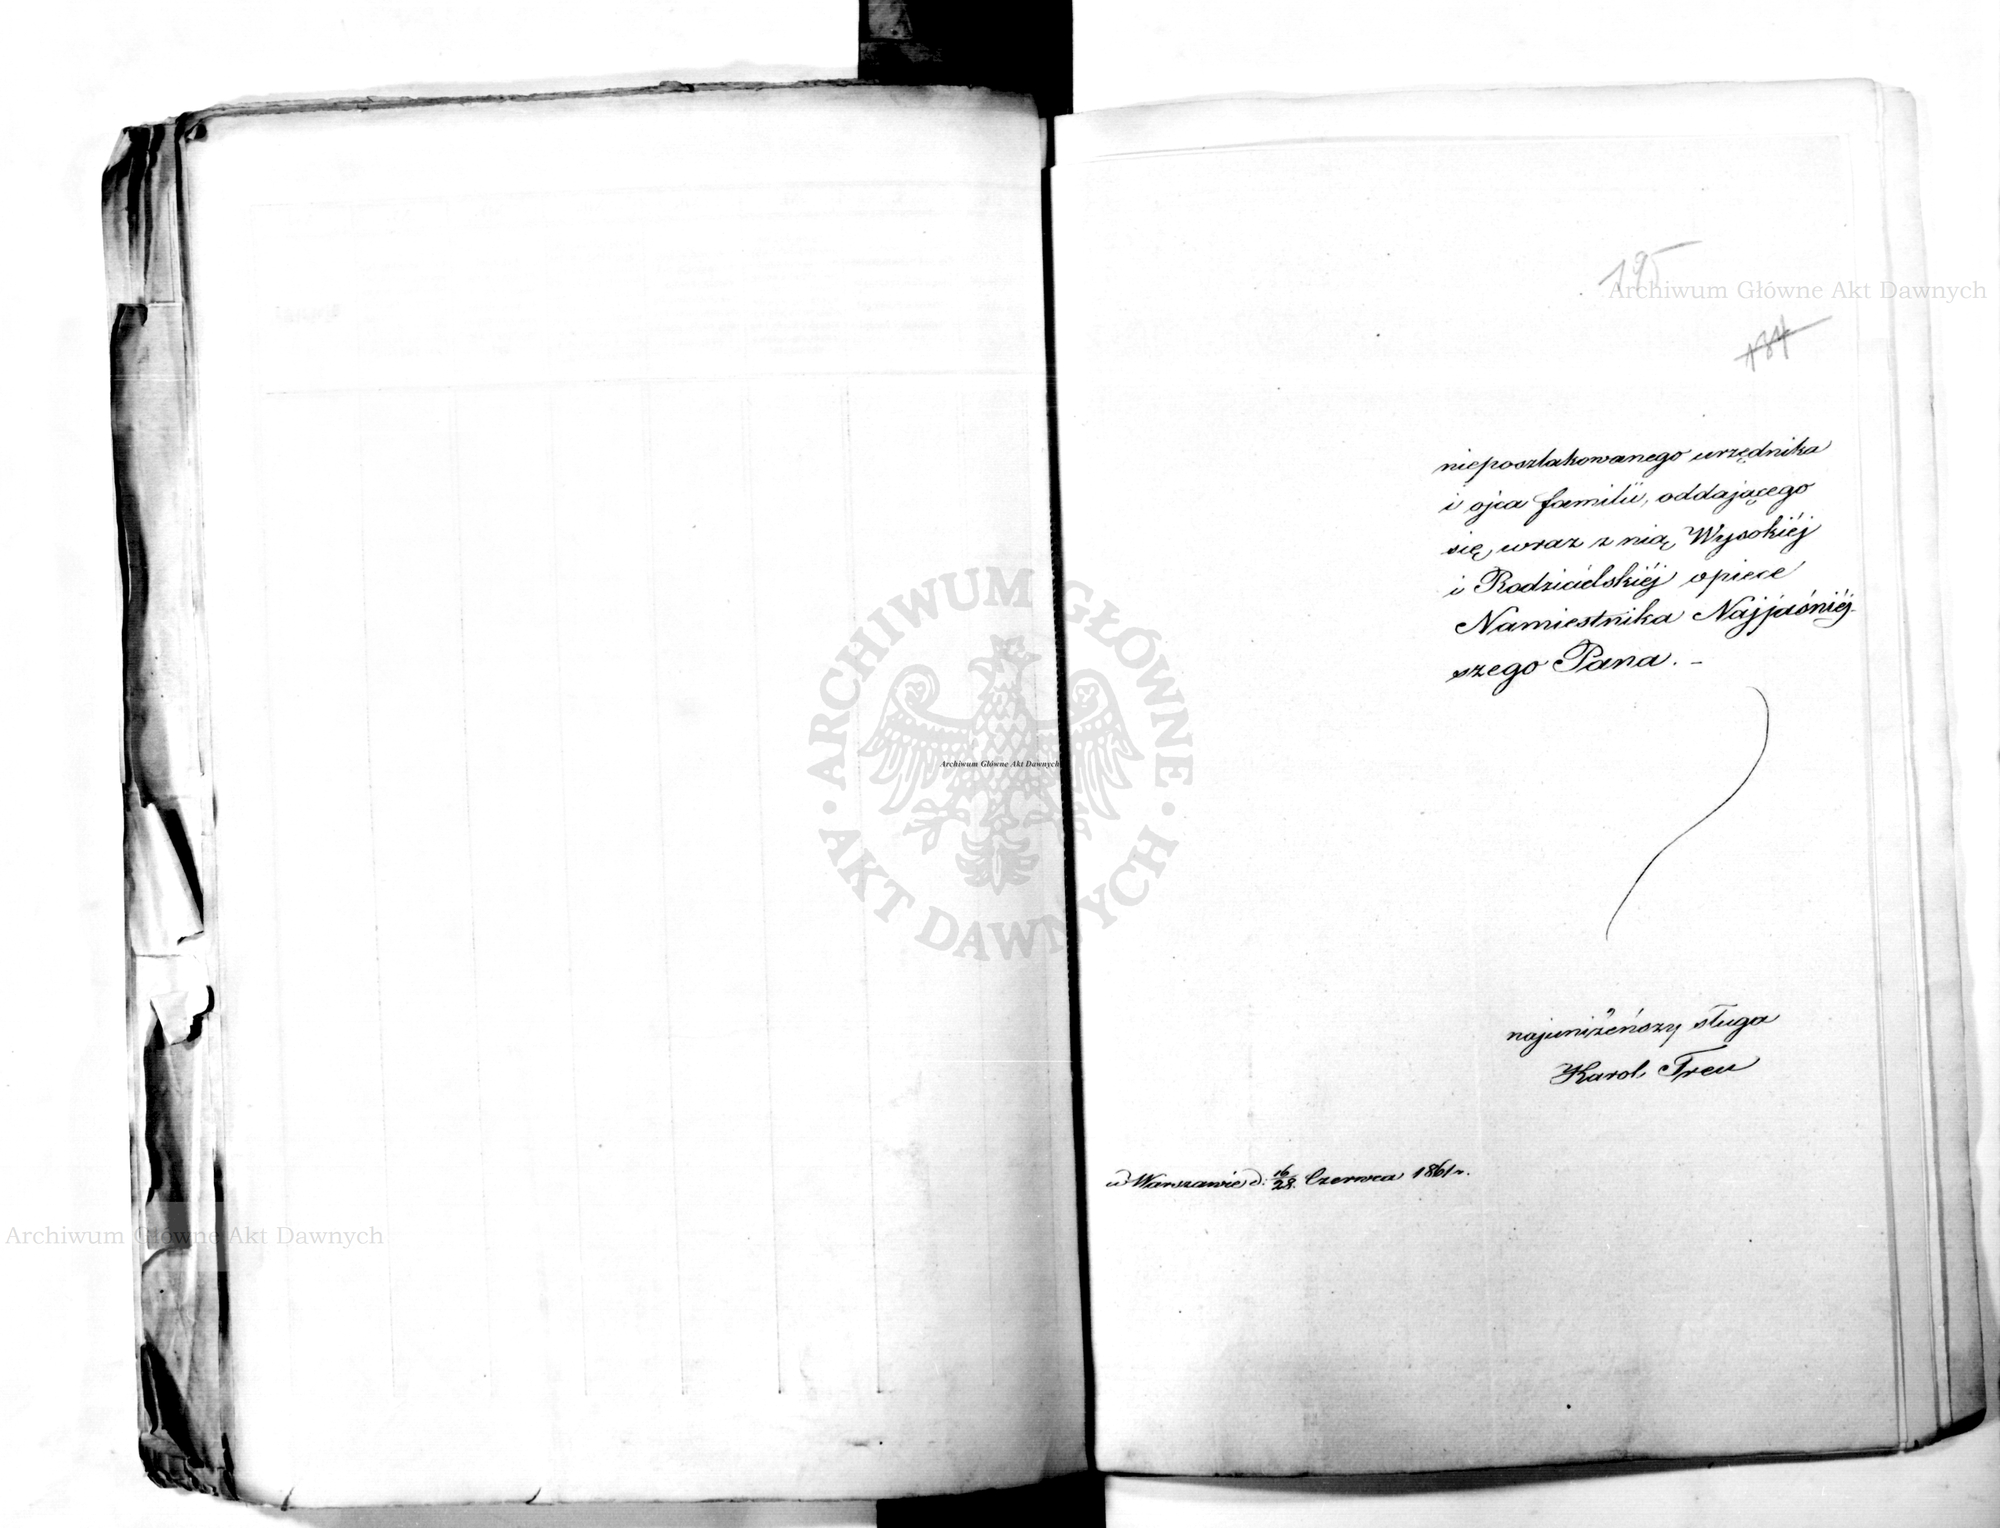 195
184
nieposzlakowanego urzędnika
i ojca familii, oddającego
się wraz z nią Wysokiéj
i Rodzicielskiéj opiece
Namiestnika Najjaśniéj-
szego Pana. –
najuniżeńszy sługa
Karol Treu
w Warszawie d. 16/28. Czerwca 1861 r.
Archiwum Główne Akt Dawnych
ARCHIWUM GŁÓWNE · AKT DAWNYCH ·
Archiwum Główne Akt Dawnych
Archiwum Główne Akt Dawnych